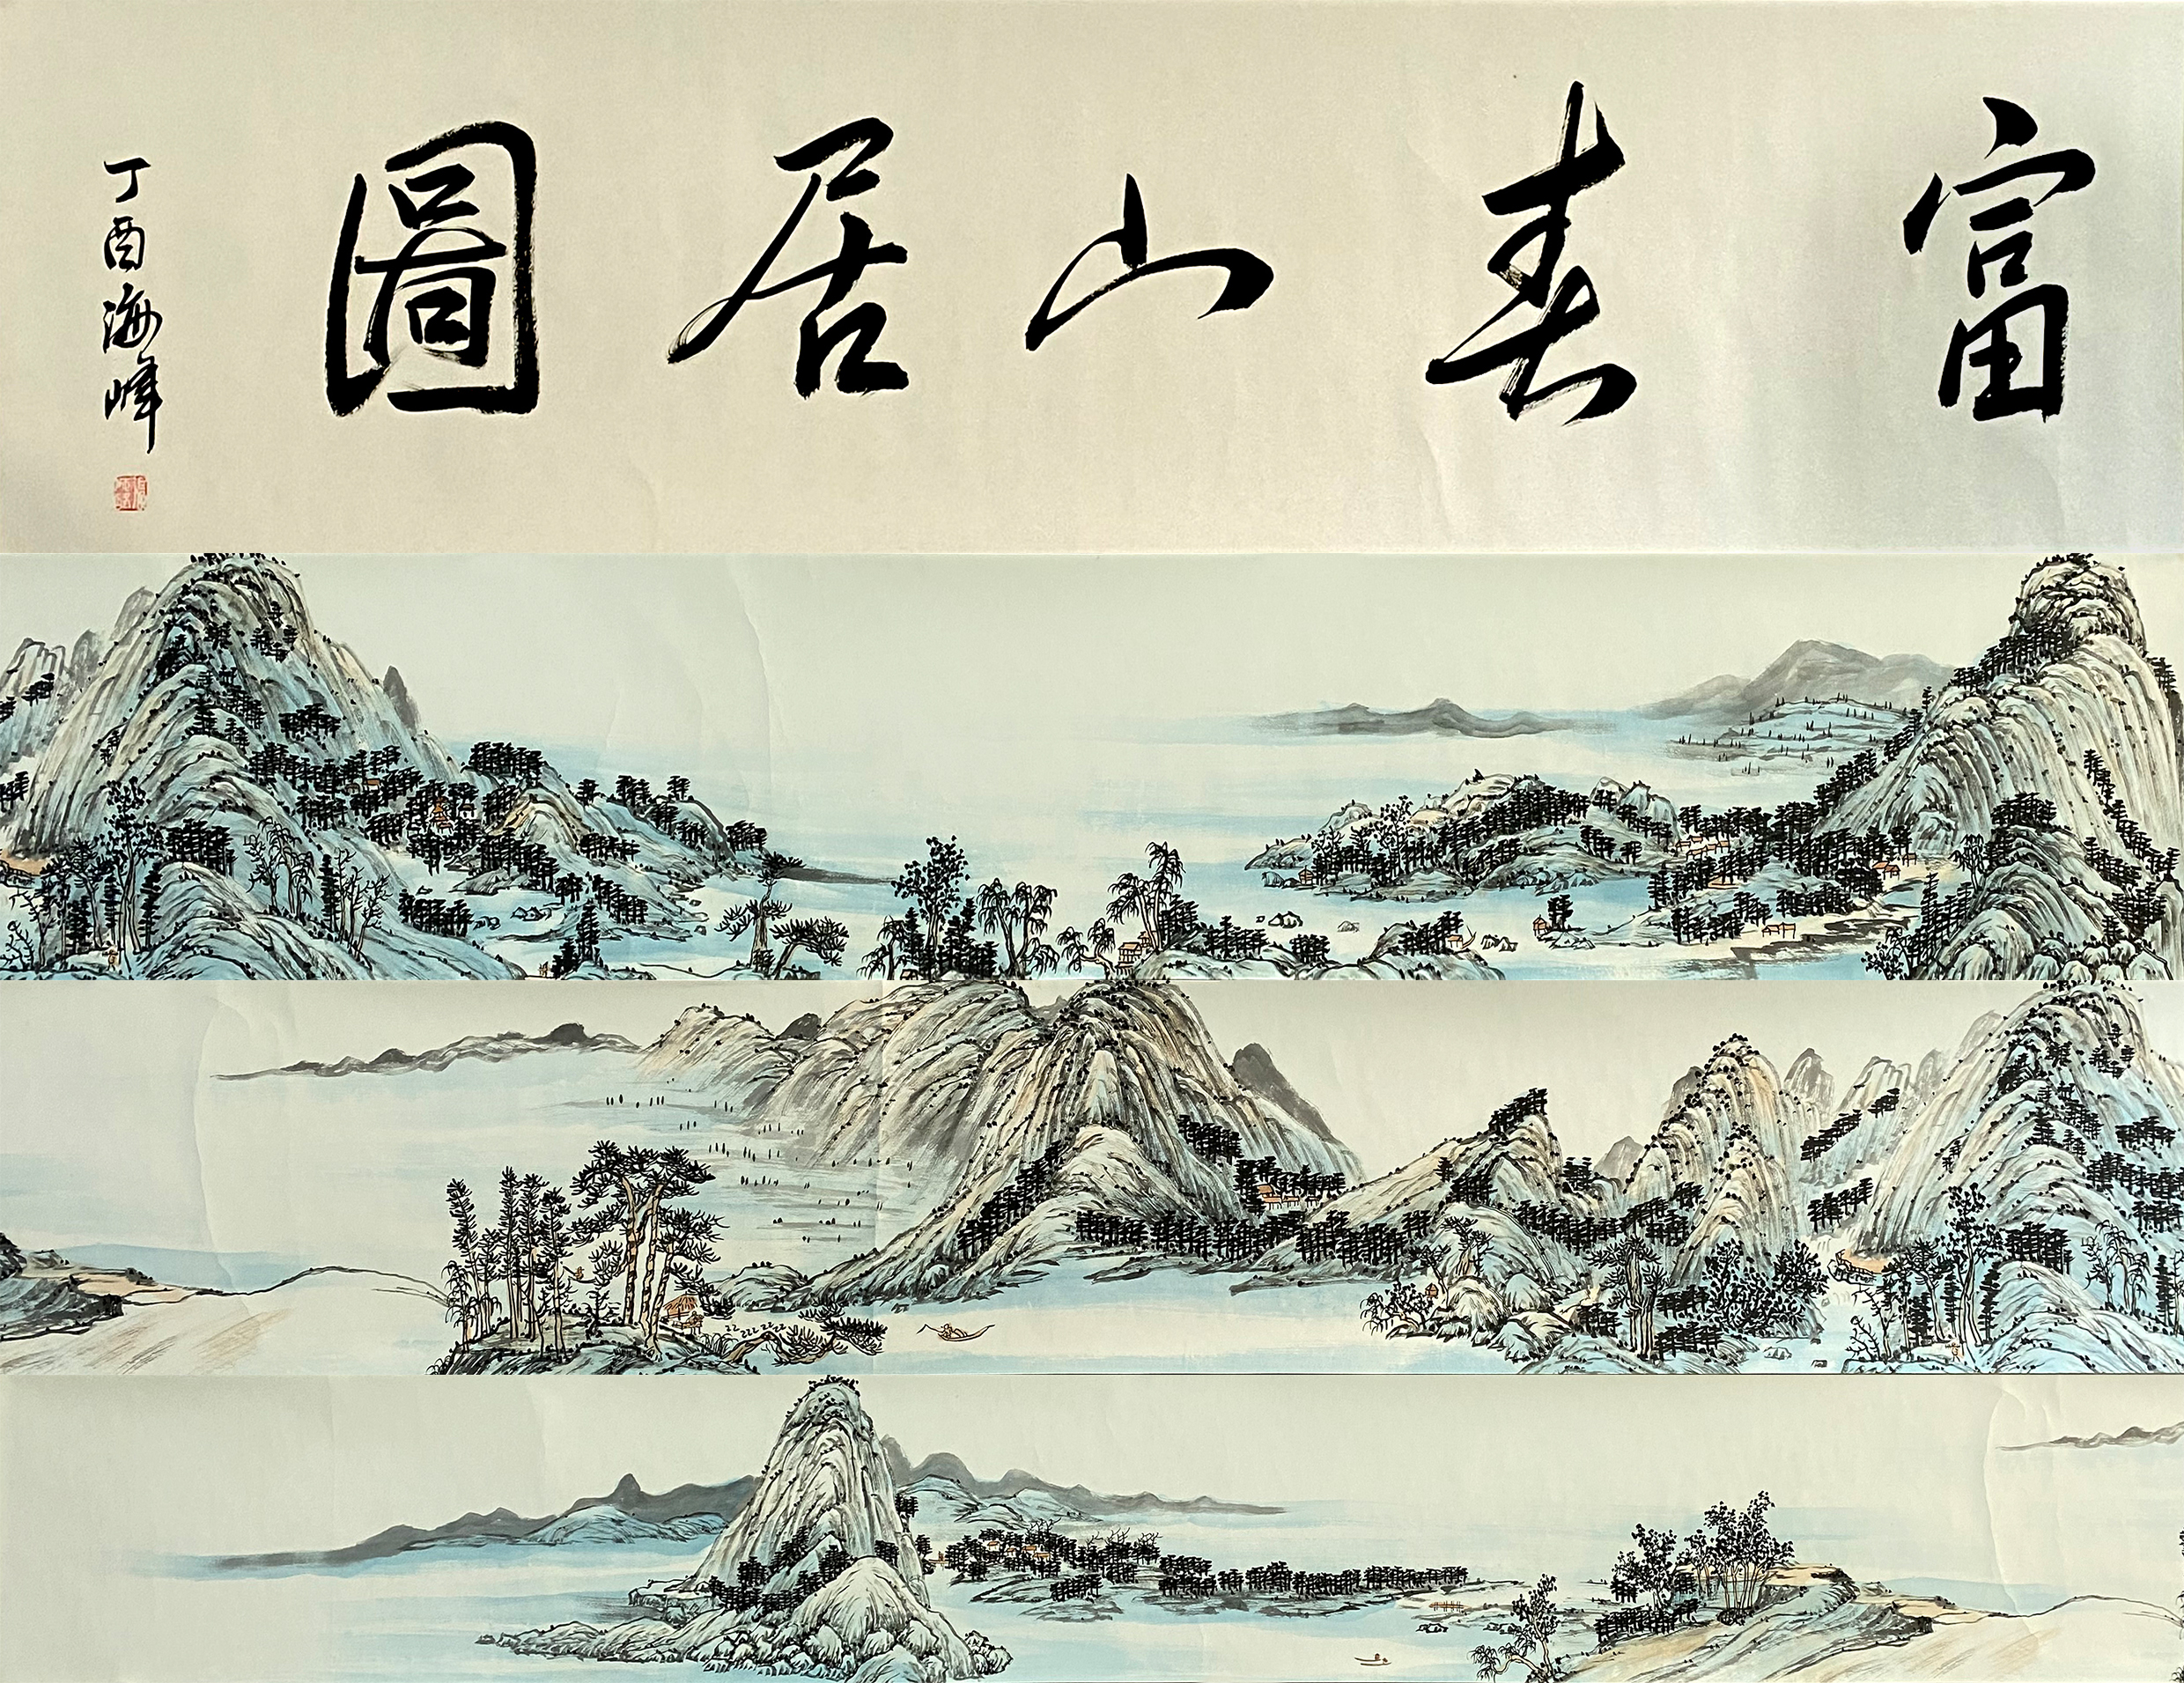 富春山居圖
丁酉海峰